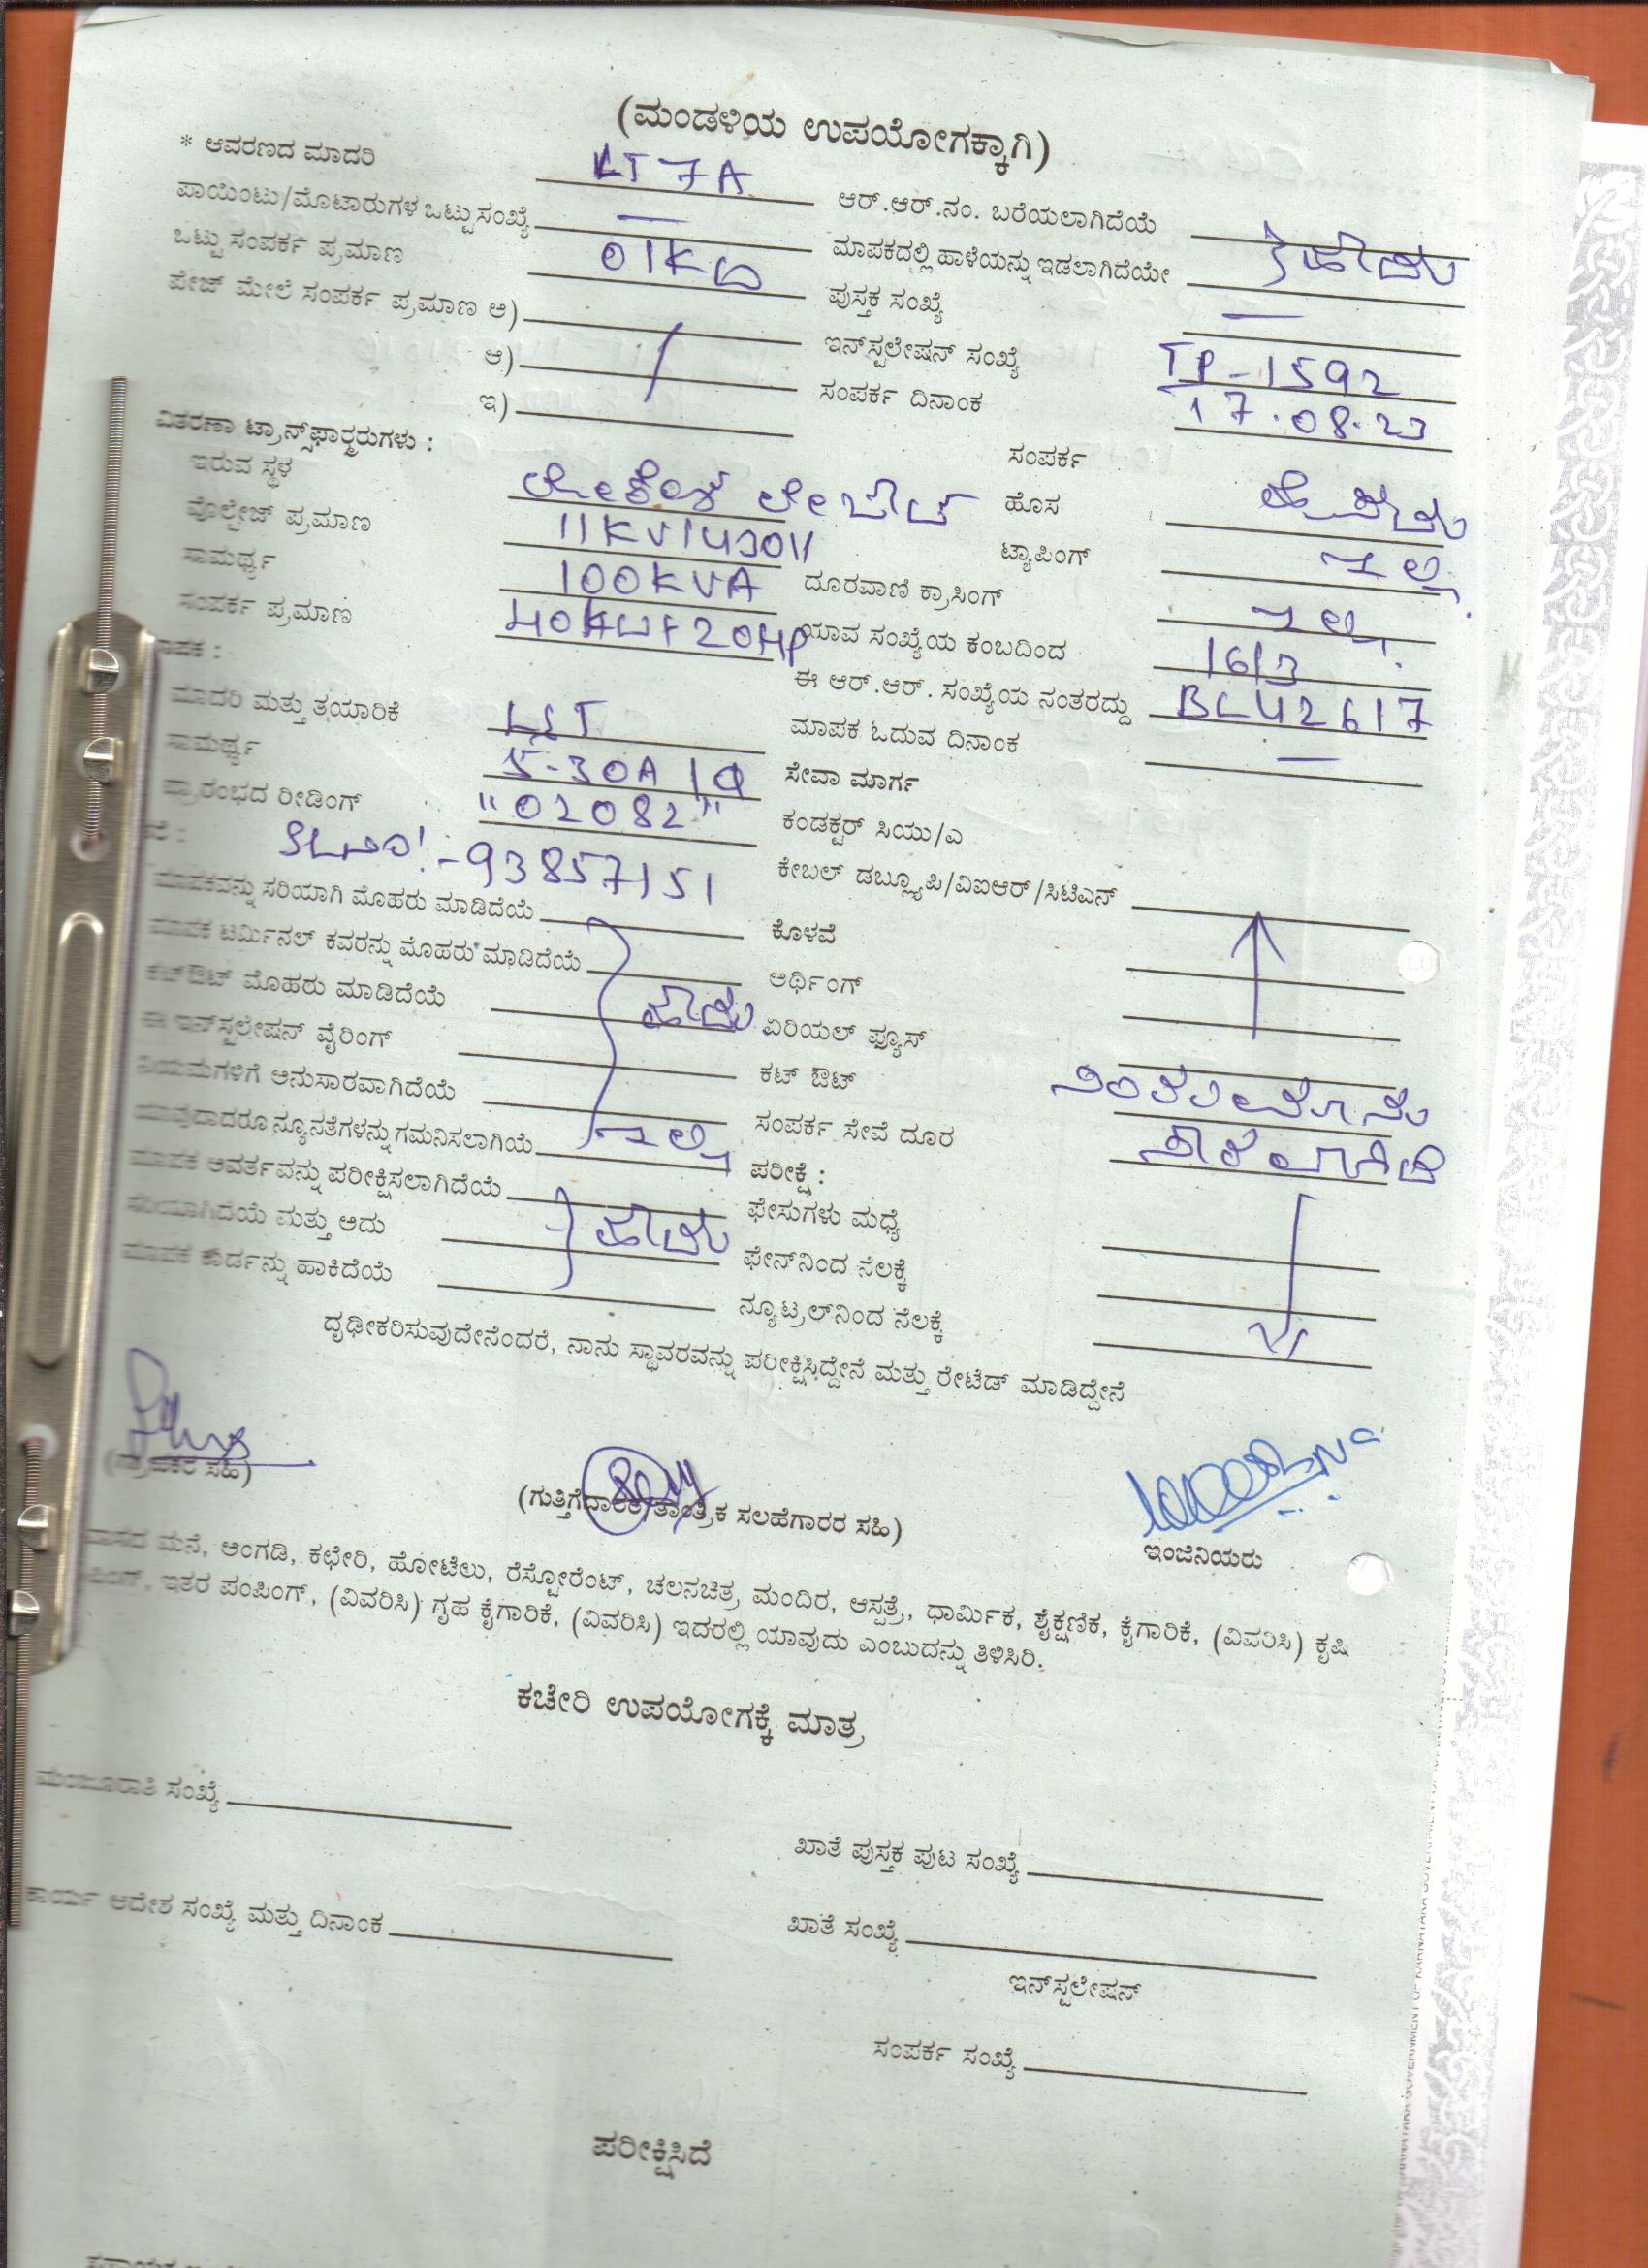 (ಮಂಡಳಿಯ ಉಪಯೋಗಕ್ಕಾಗಿ)
* ಆವರಣದ ಮಾದರಿ LT 7 A ಆರ್.ಆರ್.ನಂ. ಬರೆಯಲಾಗಿದೆಯೆ
ಪಾಯಿಂಟು/ಮೊಟಾರುಗಳ ಒಟ್ಟು ಸಂಖ್ಯೆ — ಮಾಪಕದಲ್ಲಿ ಹಾಳೆಯನ್ನು ಇಡಲಾಗಿದೆಯೇ } ಹೌದು
ಒಟ್ಟು ಸಂಪರ್ಕ ಪ್ರಮಾಣ 01KW ಪುಸ್ತಕ ಸಂಖ್ಯೆ —
ಪೇಜ್ ಮೇಲೆ ಸಂಪರ್ಕ ಪ್ರಮಾಣ ಅ) ಇನ್‌ಸ್ಟಲೇಷನ್ ಸಂಖ್ಯೆ TP-1592
ಆ) ಸಂಪರ್ಕ ದಿನಾಂಕ 17.08.23
ಇ)
ವಿತರಣಾ ಟ್ರಾನ್ಸ್‌ಫಾರ್‍ಮರುಗಳು : ಸಂಪರ್ಕ
ಇರುವ ಸ್ಥಳ ಲೇಔಟ್ ಹೊಸ ಹೌದು
ವೊಲ್ಟೇಜ್ ಪ್ರಮಾಣ 11KV/430V ಟ್ಯಾಪಿಂಗ್ ಇಲ್ಲ
ಸಾಮರ್ಥ್ಯ 100KVA ದೂರವಾಣಿ ಕ್ರಾಸಿಂಗ್ ಇಲ್ಲ.
ಸಂಪರ್ಕ ಪ್ರಮಾಣ 40KW+20HP ಯಾವ ಸಂಖ್ಯೆಯ ಕಂಬದಿಂದ 16/3
ಾಪಕ : ಈ ಆರ್.ಆರ್. ಸಂಖ್ಯೆಯ ನಂತರದ್ದು BL42617
ಮಾದರಿ ಮತ್ತು ತಯಾರಿಕೆ L&T ಮಾಪಕ ಓದುವ ದಿನಾಂಕ —
ಸಾಮರ್ಥ್ಯ 5-30A 1Φ ಸೇವಾ ಮಾರ್ಗ
ಪ್ರಾರಂಭದ ರೀಡಿಂಗ್ "02082" ಕಂಡಕ್ಟರ್ ಸಿಯು/ಎ
SLNO:-93857151 ಕೇಬಲ್ ಡಬ್ಲ್ಯೂಪಿ/ವಿಐಆರ್/ಸಿಟಿಎಸ್
ಮಾಪಕವನ್ನು ಸರಿಯಾಗಿ ಮೊಹರು ಮಾಡಿದೆಯೆ ಕೊಳವೆ
ಮಾಪಕ ಟರ್ಮಿನಲ್ ಕವರನ್ನು ಮೊಹರು ಮಾಡಿದೆಯೆ ಅರ್ಥಿಂಗ್
ಕಟ್‌ಔಟ್ ಮೊಹರು ಮಾಡಿದೆಯೆ ಹೌದು ಏರಿಯಲ್ ಫ್ಯೂಸ್
ಈ ಇನ್‌ಸ್ಟಲೇಷನ್ ವೈರಿಂಗ್ ಕಟ್ ಔಟ್
ನಿಯಮಗಳಿಗೆ ಅನುಸಾರವಾಗಿದೆಯೆ ಸಂಪರ್ಕ ಸೇವೆ ದೂರ
ಯಾವುದಾದರೂ ನ್ಯೂನತೆಗಳನ್ನು ಗಮನಿಸಲಾಗಿಯೆ ಇಲ್ಲ ಪರೀಕ್ಷೆ :
ಮಾಪಕ ಆವರ್ತವನ್ನು ಪರೀಕ್ಷಿಸಲಾಗಿದೆಯೆ ಫೇಸುಗಳು ಮಧ್ಯೆ
ಸರಿಯಾಗಿದೆಯೆ ಮತ್ತು ಅದು } ಹೌದು ಫೇಸ್‌ನಿಂದ ನೆಲಕ್ಕೆ
ಮಾಪಕ ಕಾರ್ಡನ್ನು ಹಾಕಿದೆಯೆ ನ್ಯೂಟ್ರಲ್‌ನಿಂದ ನೆಲಕ್ಕೆ
ದೃಢೀಕರಿಸುವುದೇನೆಂದರೆ, ನಾನು ಸ್ಥಾವರವನ್ನು ಪರೀಕ್ಷಿಸಿದ್ದೇನೆ ಮತ್ತು ರೇಟೆಡ್ ಮಾಡಿದ್ದೇನೆ
(ಗ್ರಾಹಕರ ಸಹಿ) (ಗುತ್ತಿಗೆದಾರರ/ತಾಂತ್ರಿಕ ಸಲಹೆಗಾರರ ಸಹಿ) ಇಂಜಿನಿಯರು
ವಾಸದ ಮನೆ, ಅಂಗಡಿ, ಕಛೇರಿ, ಹೋಟೆಲು, ರೆಸ್ಟೋರೆಂಟ್, ಚಲನಚಿತ್ರ ಮಂದಿರ, ಆಸ್ಪತ್ರೆ, ಧಾರ್ಮಿಕ, ಶೈಕ್ಷಣಿಕ, ಕೈಗಾರಿಕೆ, (ವಿವರಿಸಿ) ಕೃಷಿ
ಪಂಪಿಂಗ್, ಇತರ ಪಂಪಿಂಗ್, (ವಿವರಿಸಿ) ಗೃಹ ಕೈಗಾರಿಕೆ, (ವಿವರಿಸಿ) ಇದರಲ್ಲಿ ಯಾವುದು ಎಂಬುದನ್ನು ತಿಳಿಸಿರಿ.
ಕಚೇರಿ ಉಪಯೋಗಕ್ಕೆ ಮಾತ್ರ
ಮಂಜೂರಾತಿ ಸಂಖ್ಯೆ ಖಾತೆ ಪುಸ್ತಕ ಪುಟ ಸಂಖ್ಯೆ
ಕಾರ್ಯ ಆದೇಶ ಸಂಖ್ಯೆ ಮತ್ತು ದಿನಾಂಕ ಖಾತೆ ಸಂಖ್ಯೆ
ಇನ್‌ಸ್ಟಲೇಷನ್
ಸಂಪರ್ಕ ಸಂಖ್ಯೆ
ಪರೀಕ್ಷಿಸಿದೆ